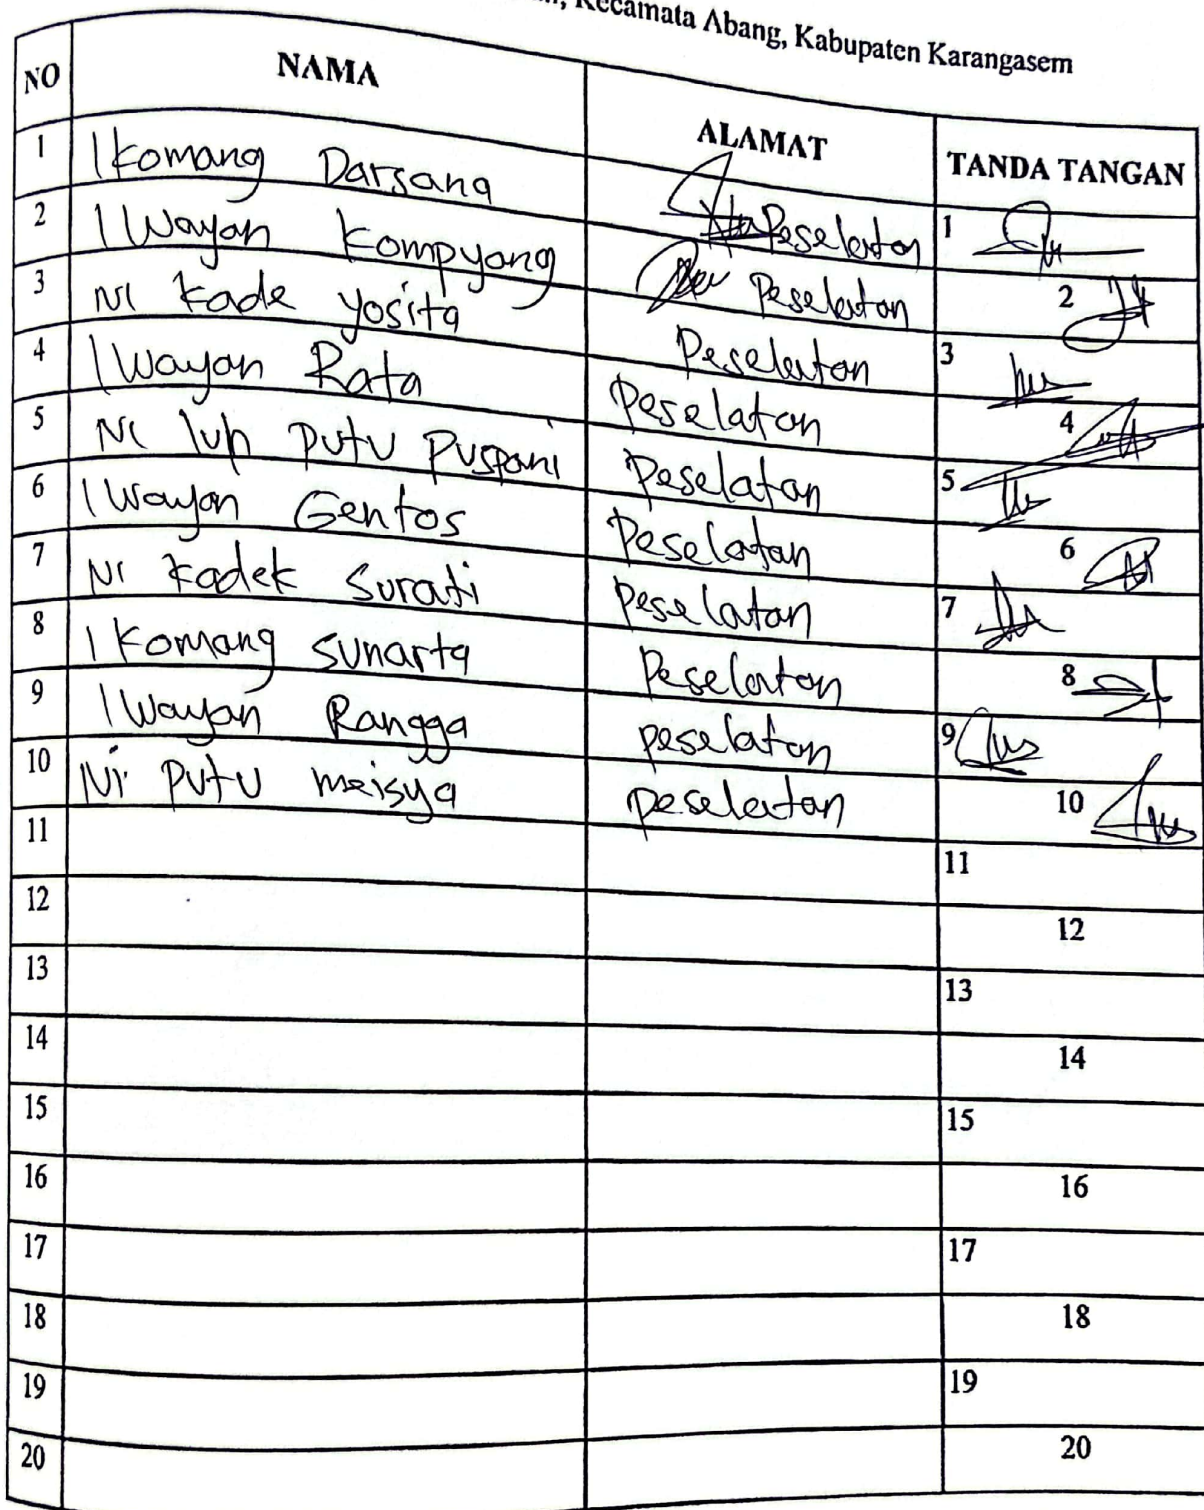 Kecamata Abang, Kabupaten Karangasem
NO NAMA ALAMAT TANDA TANGAN
1 I Komang Darsana Peselatan 1
2 I Wayan Kompyang Peselatan 2
3 Ni Kade Yosita Peselatan 3
4 I Wayan Rata Peselatan 4
5 Ni luh Putu Puspani Peselatan 5
6 I Wayan Gentos Peselatan 6
7 Ni Kadek Surati Peselatan 7
8 I Komang Sunarta Peselatan 8
9 I Wayan Rangga peselatan 9
10 Ni Putu meisya peselatan 10
11 11
12 12
13 13
14 14
15 15
16 16
17 17
18 18
19 19
20 20